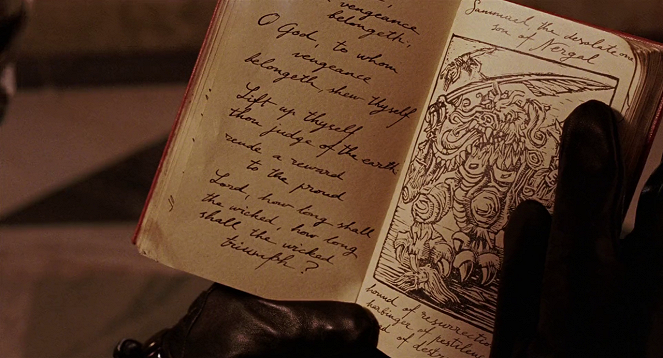 vengeance
belongeth,
O God, to whom
vengeance
belongeth shew thyself
Lift up thyself
thou judge of the earth
rende a reward
to the proud
Lord, how long shall
the wicked, how long
shall the wicked
triumph?
Sammael the desolation
son of Nergal
hound of resurrection
harbinger of pestilence
of